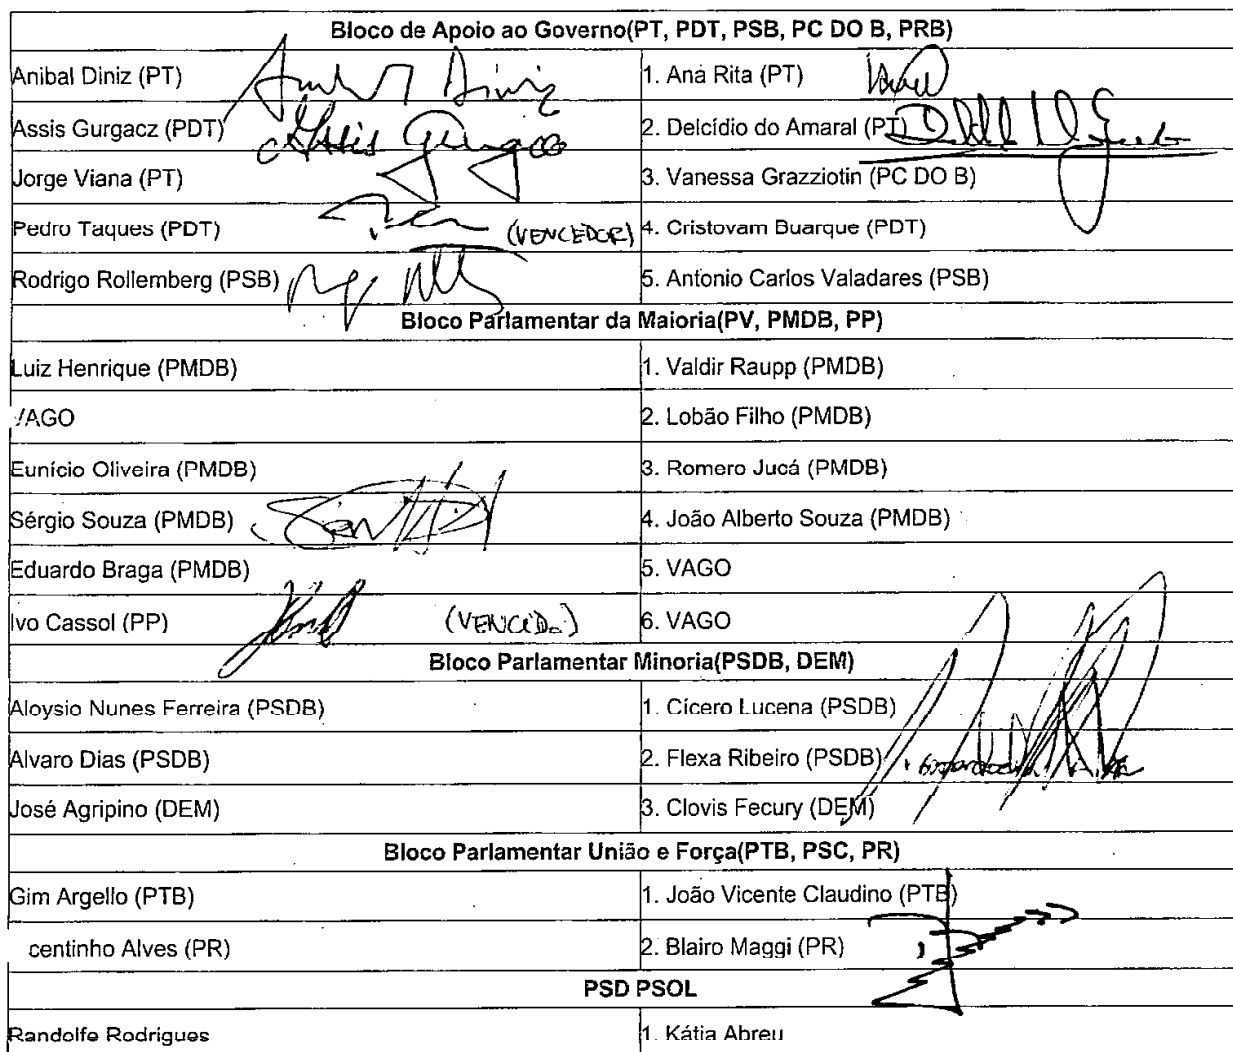 Bloco de Apoio ao Governo(PT, PDT, PSB, PC DO B, PRB)
Anibal Diniz (PT) Anibal Diniz 1. Ana Rita (PT)
Assis Gurgacz (PDT) Assis Gurgacz 2. Delcídio do Amaral (PT)
Jorge Viana (PT) 3. Vanessa Grazziotin (PC DO B)
Pedro Taques (PDT) (VENCEDOR) 4. Cristovam Buarque (PDT)
Rodrigo Rollemberg (PSB) 5. Antonio Carlos Valadares (PSB)
Bloco Parlamentar da Maioria(PV, PMDB, PP)
Luiz Henrique (PMDB) 1. Valdir Raupp (PMDB)
VAGO 2. Lobão Filho (PMDB)
Eunício Oliveira (PMDB) 3. Romero Jucá (PMDB)
Sérgio Souza (PMDB) 4. João Alberto Souza (PMDB)
Eduardo Braga (PMDB) 5. VAGO
Ivo Cassol (PP) (VENCIDO) 6. VAGO
Bloco Parlamentar Minoria(PSDB, DEM)
Aloysio Nunes Ferreira (PSDB) 1. Cícero Lucena (PSDB)
Alvaro Dias (PSDB) 2. Flexa Ribeiro (PSDB)
José Agripino (DEM) 3. Clovis Fecury (DEM)
Bloco Parlamentar União e Força(PTB, PSC, PR)
Gim Argello (PTB) 1. João Vicente Claudino (PTB)
centinho Alves (PR) 2. Blairo Maggi (PR)
PSD PSOL
Randolfe Rodrigues 1. Kátia Abreu